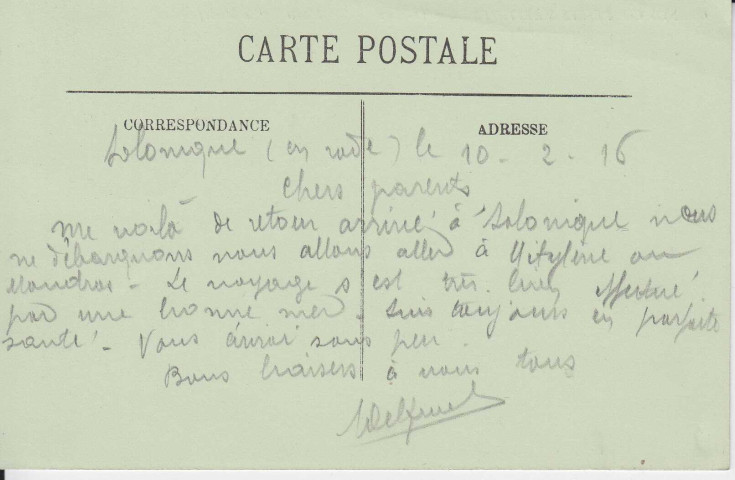 CARTE POSTALE
CORRESPONDANCE
ADRESSE
Salonique (en rade) le 10 - 2 - 16
Chers parents
Me voilà de retour arrivé à Salonique nous
ne débarquons nous allons aller à Mitylène ou
Moudros - Le voyage s'est très bien effectué
par une bonne mer. Suis toujours en parfaite
santé - Vous écrirai sous peu.
Bons baisers à vous tous